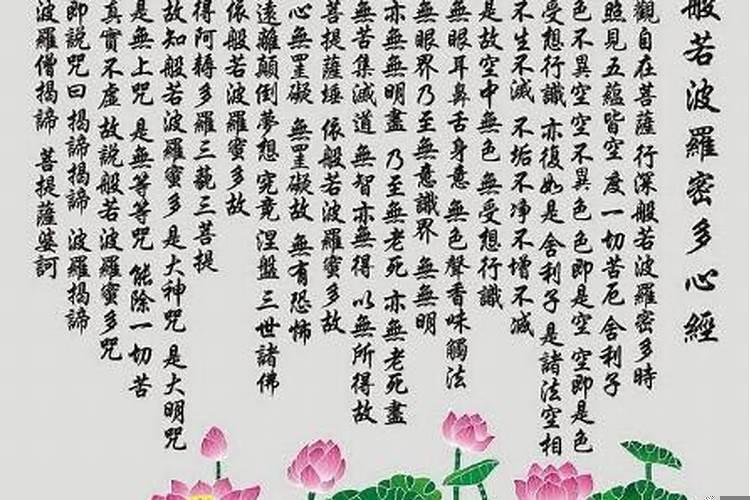 般若波羅密多心經
觀自在菩薩 行深般若波羅密多時
照見五蘊皆空 度一切苦厄 舍利子
色不異空 空不異色 色即是空 空即是色
受想行識 亦復如是 舍利子 是諸法空相
不生不滅 不垢不净 不增不减
是故空中無色 無受想行識
無眼耳鼻舌身意 無色聲香味觸法
無眼界 乃至無意識界 無無明
亦無無明盡 乃至無老死 亦無老死盡
無苦集滅道 無智亦無得 以無所得故
菩提薩埵 依般若波羅蜜多故
心無罣礙 無罣礙故 無有恐怖
遠離顛倒夢想 究竟涅盤 三世諸佛
依般若波羅蜜多故
得阿耨多羅三藐三菩提
故知般若波羅蜜多 是大神咒 是大明咒
是無上咒 是無等等咒 能除一切苦
真實不虛 故説般若波羅蜜多咒
即説咒曰 揭諦揭諦 波羅揭諦
波羅僧揭諦 菩提薩婆訶